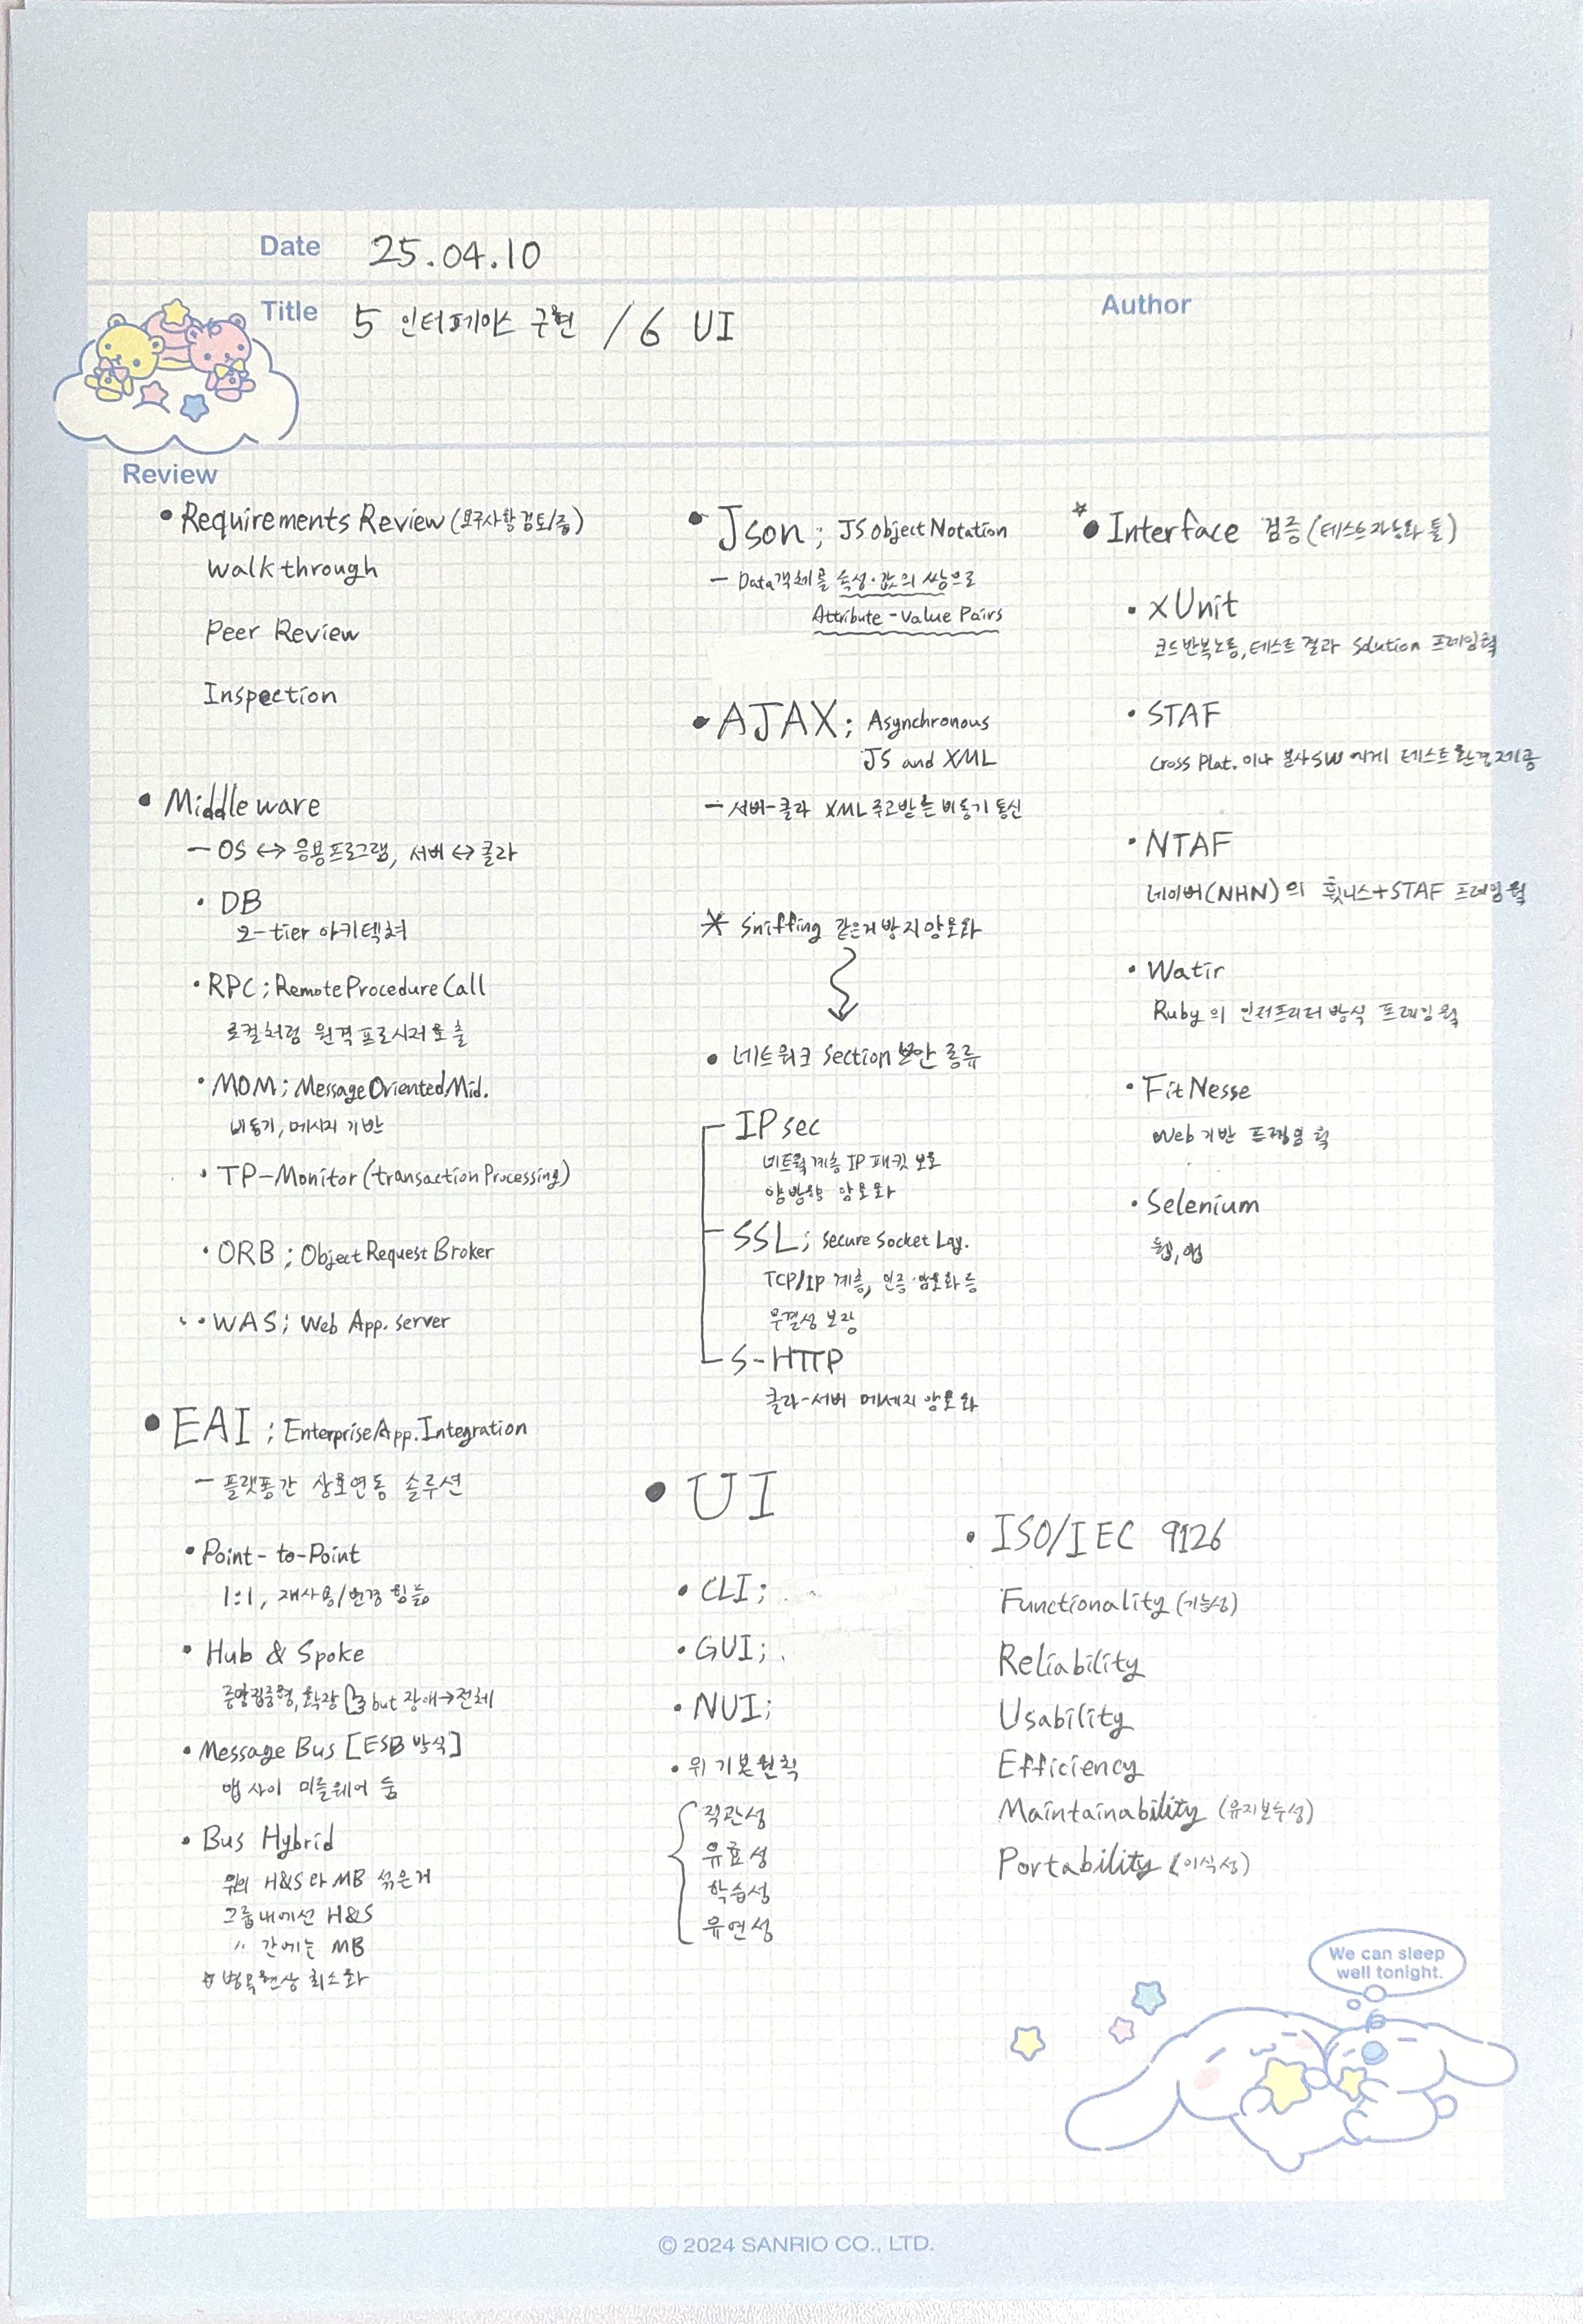 Date 25.04.10
Title 5 인터페이스 구현 / 6 UI
Author
Review
• Requirements Review (요구사항 검토/증)
Walkthrough
Peer Review
Inspection
• Middleware
- OS ↔ 응용프로그램, 서버 ↔ 클라
· DB
2-tier 아키텍쳐
· RPC ; Remote Procedure Call
로컬처럼 원격 프로시저 호출
· MOM ; Message Oriented Mid.
비동기, 메시지 기반
· TP-Monitor (transaction Processing)
· ORB ; Object Request Broker
· WAS ; Web App. Server
• EAI ; Enterprise App. Integration
- 플랫폼간 상호연동 솔루션
• Point-to-Point
1:1, 재사용/변경 힘듦
• Hub & Spoke
중앙집중형, 확장 but 장애→전체
• Message Bus [ESB 방식]
앱 사이 미들웨어 둠
• Bus Hybrid
위의 H&S 와 MB 섞은거
그룹내에선 H&S
〃 간에는 MB
☆ 병목현상 최소화
• Json ; JS Object Notation
- Data객체를 속성·값의 쌍으로
Attribute - Value Pairs
• AJAX ; Asynchronous
JS and XML
- 서버-클라 XML 주고받는 비동기 통신
* Sniffing 같은거 방지 암호화
• 네트워크 Section 보안 종류
IP sec
네트웤 계층 IP 패킷 보호
양방향 암호화
SSL ; Secure Socket Lay.
TCP/IP 계층, 인증·암호화 등
무결성 보장
S-HTTP
클라-서버 메세지 암호화
• UI
• CLI ;
• GUI ;
• NUI ;
• 위 기본원칙
직관성
유효성
학습성
유연성
☆ • Interface 검증 (테스트 자동화 툴)
• xUnit
코드반복노동, 테스트 결과 Solution 프레임웤
• STAF
Cross Plat. 이나 분산SW 에게 테스트환경제공
• NTAF
네이버(NHN)의 휫니스+STAF 프레임웤
• Watir
Ruby 의 인터프리터 방식 프레임웤
• FitNesse
Web 기반 프레임웤
• Selenium
웹, 앱
• ISO/IEC 9126
Functionality (기능성)
Reliability
Usability
Efficiency
Maintainability (유지보수성)
Portability (이식성)
We can sleep
well tonight.
© 2024 SANRIO CO., LTD.